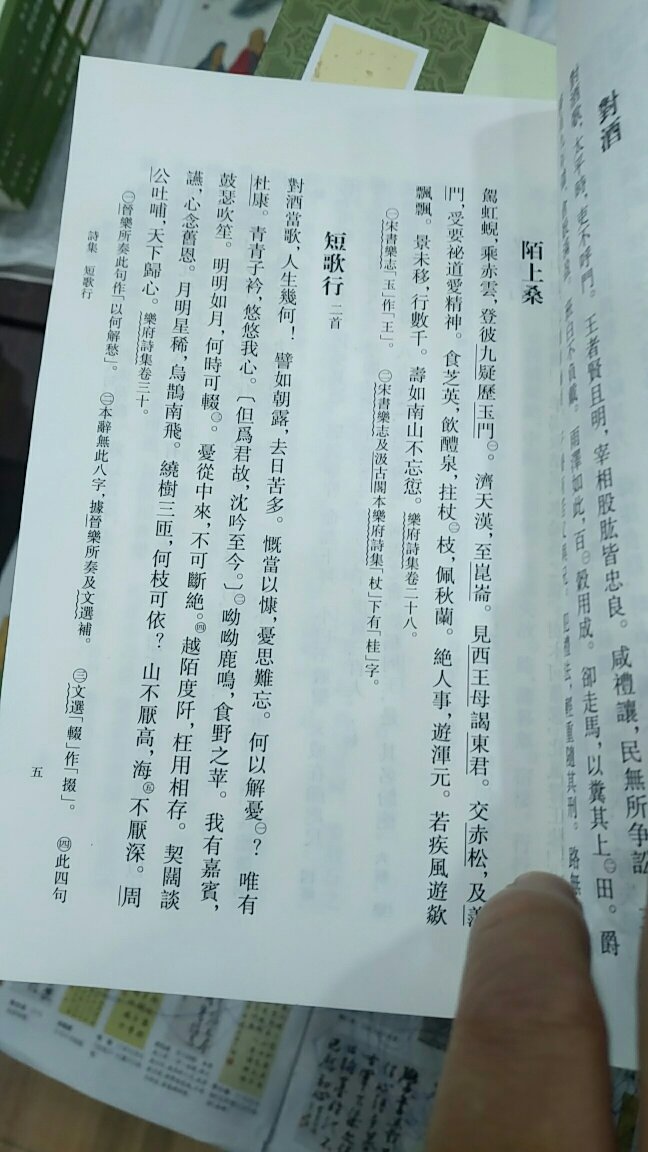 對酒
對酒歌，太平時，吏不呼門。王者賢且明，宰相股肱皆忠良。咸禮讓，民無所爭訟
雨澤如此，百㊀穀用成。卻走馬，以糞其上㊁田。爵
陌上桑
駕虹蜺，乘赤雲，登彼九疑歷玉門㊀。濟天漢，至崑崙。見西王母謁東君。交赤松，及
門，受要祕道愛精神。食芝英，飲醴泉，拄杖㊁枝，佩秋蘭。絶人事，遊渾元。若疾風遊歘
飄飄。景未移，行數千。壽如南山不忘愆。樂府詩集卷二十八。
㊀宋書樂志「玉」作「王」。㊁宋書樂志及汲古閣本樂府詩集「杖」下有「桂」字。
短歌行 二首
對酒當歌，人生幾何！譬如朝露，去日苦多。慨當以慷，憂思難忘。何以解憂㊀？唯有
杜康。青青子衿，悠悠我心。〔但爲君故，沈吟至今。〕㊁呦呦鹿鳴，食野之苹。我有嘉賓，
鼓瑟吹笙。明明如月，何時可輟㊂。憂從中來，不可斷絶。㊃越陌度阡，枉用相存。契闊談
讌，心念舊恩。月明星稀，烏鵲南飛。繞樹三匝，何枝可依？山不厭高，海㊄不厭深。周
公吐哺，天下歸心。樂府詩集卷三十。
㊀晉樂所奏此句作「以何解愁」。㊁本辭無此八字，據晉樂所奏及文選補。㊂文選「輟」作「掇」。㊃此四句
詩集 短歌行
五